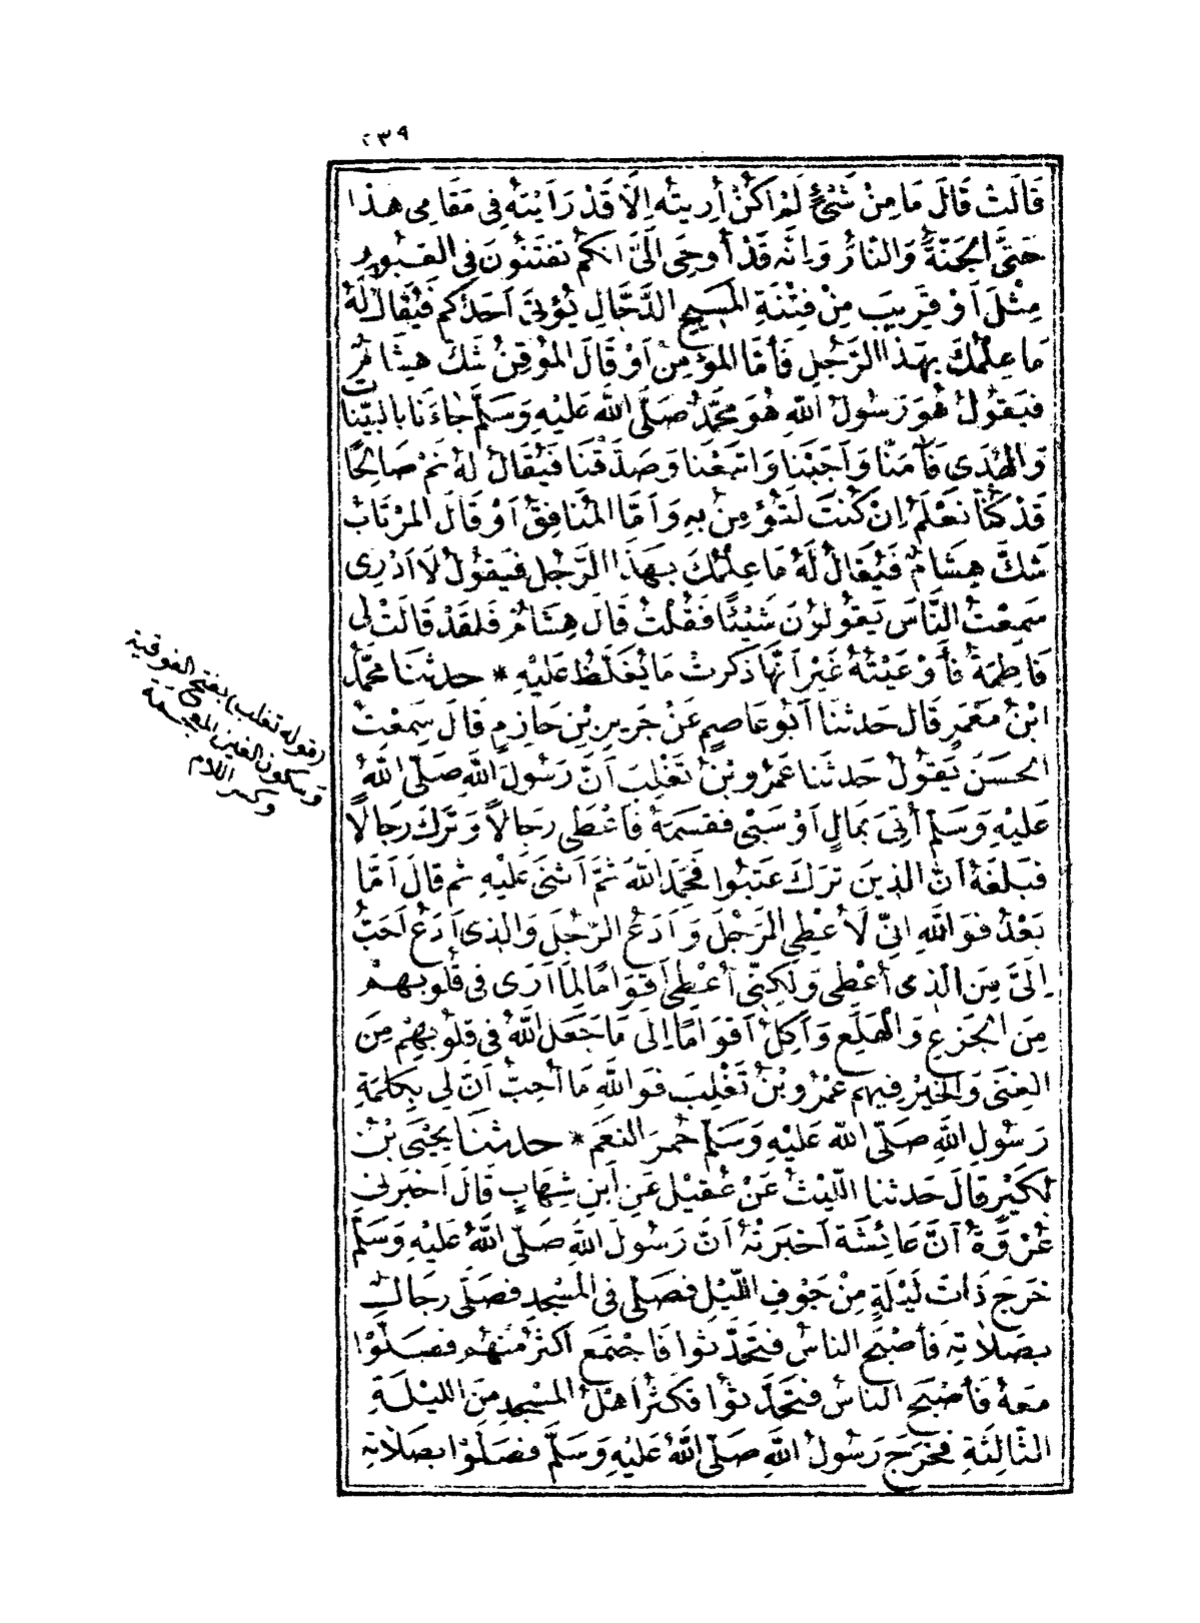 ٢٣٩
قَالَتْ قَالَ مَا مِنْ شَئٍْ لَمْ اَكُنْ أُرِيتُهُ اِلَّا قَدْ رَاَيْتُهُ فِى مَقَامِى هٰذَا
حَتَّى الْجَنَّةُ وَالنَّارُ وَاِنَّهُ قَدْ أُوحِىَ اِلَىَّ اَنَّكُمْ تُفْتَنُونَ فِى الْقُبُورِ
مِثْلَ اَوْ قَرِيبَ مِنْ فِتْنَةِ الْمَسِيحِ الدَّجَّالِ يُؤْتَى اَحَدُكُمْ فَيُقَالُ لَهُ
مَا عِلْمُكَ بِهٰذَا الرَّجُلِ فَأَمَّا الْمُؤْمِنُ اَوْ قَالَ الْمُوقِنُ شَكَّ هِشَامٌ
فَيَقُولُ هُوَ رَسُولُ اللّٰهِ هُوَ مُحَمَّدٌ صَلَّى اللّٰهُ عَلَيْهِ وَسَلَّمَ جَاءَنَا بِالْبَيِّنَاتِ
وَالْهُدَى فَآمَنَّا وَاَجَبْنَا وَاتَّبَعْنَا وَصَدَّقْنَا فَيُقَالُ لَهُ نَمْ صَالِحًا
قَدْ كُنَّا نَعْلَمُ اِنْ كُنْتَ لَتُؤْمِنُ بِهِ وَاَمَّا الْمُنَافِقُ اَوْ قَالَ الْمُرْتَابُ
شَكَّ هِشَامٌ فَيُقَالُ لَهُ مَا عِلْمُكَ بِهٰذَا الرَّجُلِ فَيَقُولُ لَا اَدْرِى
سَمِعْتُ النَّاسَ يَقُولُونَ شَيْئًا فَقُلْتُ قَالَ هِشَامٌ فَلَقَدْ قَالَتْ لِى
فَاطِمَةُ فَأَوْعَيْتُهُ غَيْرَ اَنَّهَا ذَكَرَتْ مَا يُغَلَّظُ عَلَيْهِ * حدثنا مُحَمَّدُ
ابْنُ مَعْمَرٍ قَالَ حَدثنا اَبُو عَاصِمٍ عَنْ جَرِيرِ بْنِ حَازِمٍ قَالَ سَمِعْتُ
الْحَسَنَ يَقُولُ حَدثنا عَمْرُو بْنُ تَغْلِبَ اَنَّ رَسُولَ اللّٰهِ صَلَّى اللّٰهُ
عَلَيْهِ وَسَلَّمَ أُتِىَ بِمَالٍ اَوْ سَبْىٍ فَقَسَمَهُ فَأَعْطَى رِجَالاً وَتَرَكَ رِجَالاً
فَبَلَغَهُ اَنَّ الَّذِينَ تَرَكَ عَتَبُوا فَحَمِدَ اللّٰهَ ثُمَّ اَثْنَى عَلَيْهِ ثُمَّ قَالَ اَمَّا
بَعْدُ فَوَاللّٰهِ اِنِّى لَأُعْطِى الرَّجُلَ وَاَدَعُ الرَّجُلَ وَالَّذِى اَدَعُ اَحَبُّ
اِلَىَّ مِنَ الَّذِى أُعْطِى وَلٰكِنِّى أُعْطِى اَقْوَامًا لِمَا اَرَى فِى قُلُوبِهِمْ
مِنَ الْجَزَعِ وَالْهَلَعِ وَاَكِلُ اَقْوَامًا اِلَى مَا جَعَلَ اللّٰهُ فِى قُلُوبِهِمْ مِنَ
الْغِنَى وَالْخَيْرِ فِيهِمْ عَمْرُو بْنُ تَغْلِبَ فَوَاللّٰهِ مَا أُحِبُّ اَنَّ لِى بِكَلِمَةِ
رَسُولِ اللّٰهِ صَلَّى اللّٰهُ عَلَيْهِ وَسَلَّمَ حُمْرَ النَّعَمِ * حدثنا يَحْيَى بْنُ
بُكَيْرٍ قَالَ حَدثنا اللَّيْثُ عَنْ عُقَيْلٍ عَنِ ابْنِ شِهَابٍ قَالَ اَخْبَرَنِى
عُرْوَةُ اَنَّ عَائِشَةَ اَخْبَرَتْهُ اَنَّ رَسُولَ اللّٰهِ صَلَّى اللّٰهُ عَلَيْهِ وَسَلَّمَ
خَرَجَ ذَاتَ لَيْلَةٍ مِنْ جَوْفِ اللَّيْلِ فَصَلَّى فِى الْمَسْجِدِ فَصَلَّى رِجَالٌ
بِصَلَاتِهِ فَأَصْبَحَ النَّاسُ فَتَحَدَّثُوا فَاجْتَمَعَ اَكْثَرُ مِنْهُمْ فَصَلَّوْا
مَعَهُ فَأَصْبَحَ النَّاسُ فَتَحَدَّثُوا فَكَثُرَ اَهْلُ الْمَسْجِدِ مِنَ اللَّيْلَةِ
الثَّالِثَةِ فَخَرَجَ رَسُولُ اللّٰهِ صَلَّى اللّٰهُ عَلَيْهِ وَسَلَّمَ فَصَلَّوْا بِصَلَاتِهِ
(قوله تغلب) بفتح الفوقية
وسكون الغين المعجمة
وكسر اللام